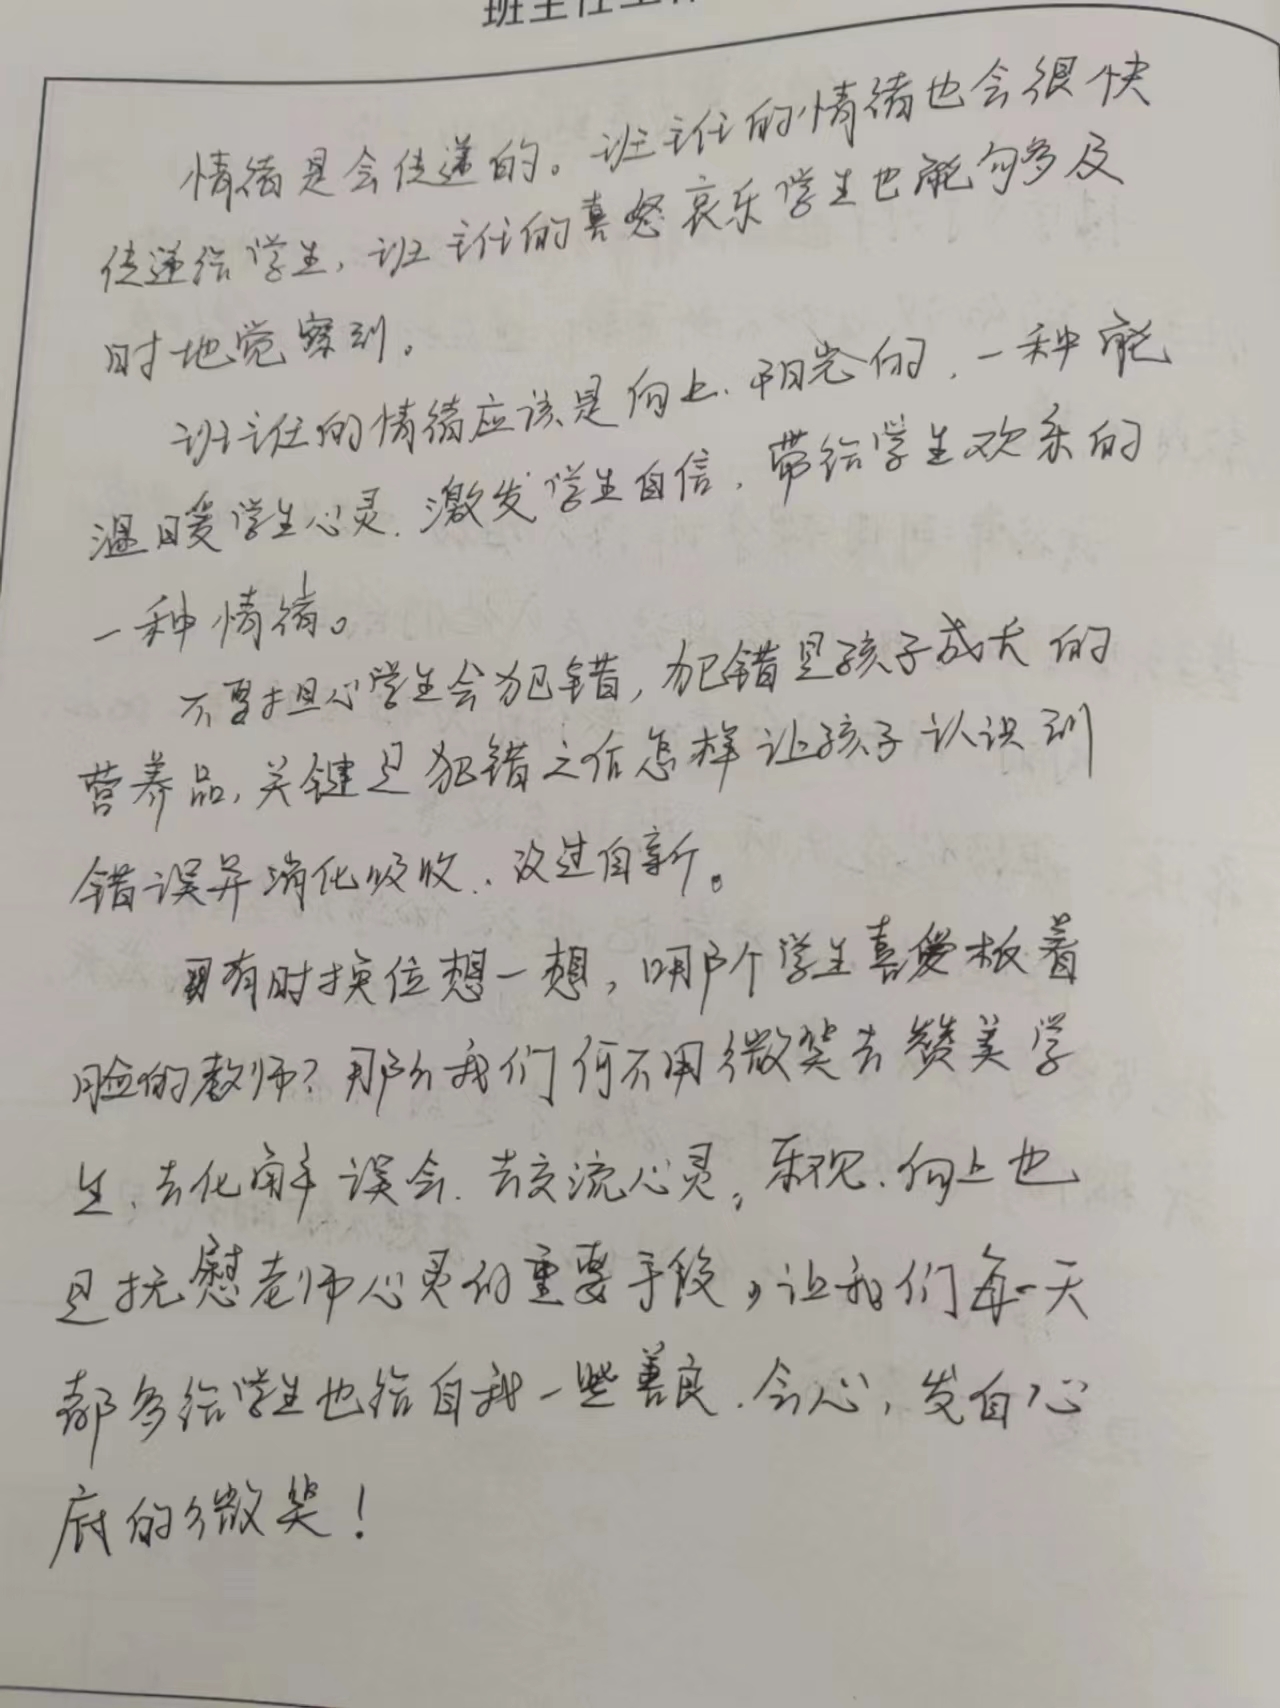 班主任工作
情绪是会传递的。班主任的情绪也会很快
传递给学生,班主任的喜怒哀乐学生也能够多及
时地觉察到。
班主任的情绪应该是向上、阳光的,一种能
温暖学生心灵、激发学生自信,带给学生欢乐的
一种情绪。
不要担心学生会犯错,犯错是孩子成长的
营养品,关键是犯错之后怎样让孩子认识到
错误并消化吸收、改过自新。
有时换位想一想,哪个学生喜爱板着
脸的教师?那么我们何不用微笑去赞美学
生、去化解误会、去交流心灵,乐观、向上也
是抚慰老师心灵的重要手段,让我们每一天
都多给学生也给自我一些善良、会心,发自心
底的微笑!